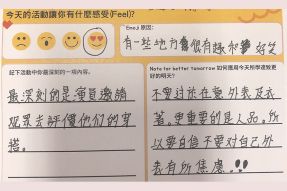 今天的活動讓你有什麼感受(Feel)?
Emoji 原因:
有一些地方會很有趣和好笑
記下活動中你最深刻的一項內容。
最深刻的是演員邀請
觀眾去評價他們的穿
搭。
Note for better tomorrow 如何應用今天所學達致更
好的明天?
不要对於在意外表及衣
著。更重要的是人品。所
以要自信不要对自己外
表有所焦慮。!!